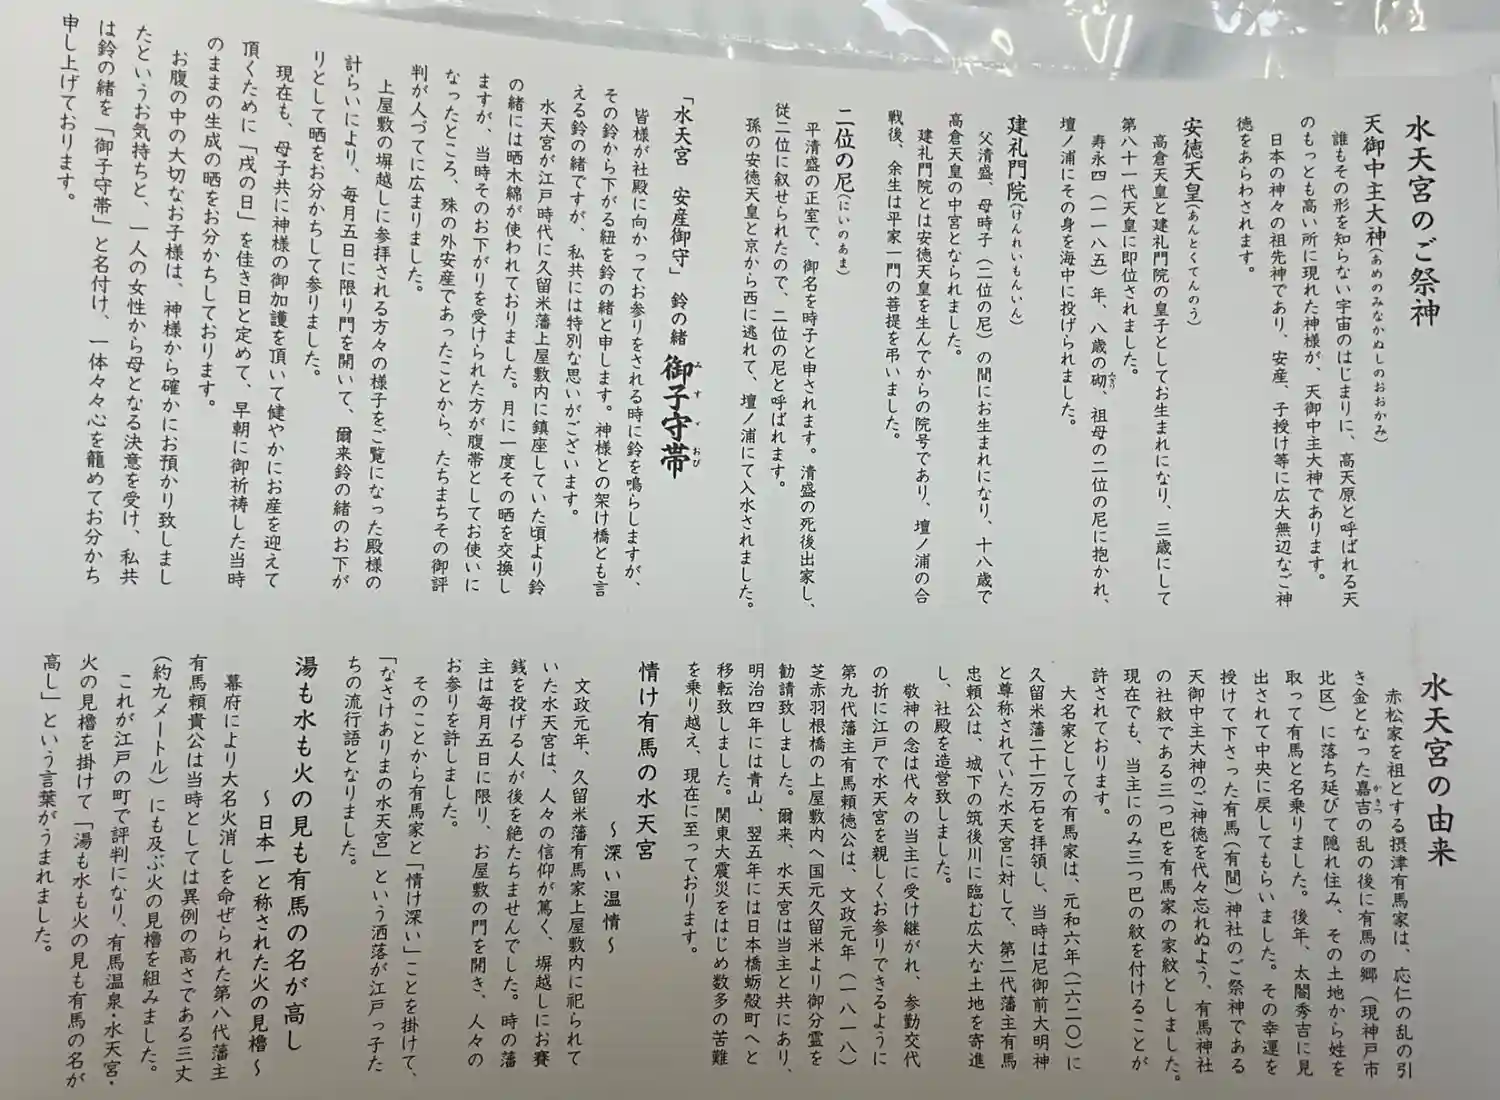 水天宮のご祭神
天御中主大神(あめのみなかぬしのおおかみ)
誰もその形を知らない宇宙のはじまりに、高天原と呼ばれる天
のもっとも高い所に現れた神様が、天御中主大神であります。
日本の神々の祖先神であり、安産、子授け等に広大無辺なご神
徳をあらわされます。
安徳天皇(あんとくてんのう)
高倉天皇と建礼門院の皇子としてお生まれになり、三歳にして
第八十一代天皇に即位されました。
寿永四(一一八五)年、八歳の砌、祖母の二位の尼に抱かれ、
壇ノ浦にその身を海中に投げられました。
建礼門院(けんれいもんいん)
父清盛、母時子(二位の尼)の間にお生まれになり、十八歳で
高倉天皇の中宮となられました。
建礼門院とは安徳天皇を生んでからの院号であり、壇ノ浦の合
戦後、余生は平家一門の菩提を弔いました。
二位の尼(にいのあま)
平清盛の正室で、御名を時子と申されます。清盛の死後出家し、
従二位に叙せられたので、二位の尼と呼ばれます。
孫の安徳天皇と京から西に逃れて、壇ノ浦にて入水されました。
「水天宮 安産御守」鈴の緒 御子守帯
みすゞおび
皆様が社殿に向かってお参りをされる時に鈴を鳴らしますが、
その鈴から下がる紐を鈴の緒と申します。神様との架け橋とも言
える鈴の緒ですが、私共には特別な思いがございます。
水天宮が江戸時代に久留米藩上屋敷内に鎮座していた頃より鈴
の緒には晒木綿が使われておりました。月に一度その晒を交換し
ますが、当時そのお下がりを受けられた方が腹帯としてお使いに
なったところ、殊の外安産であったことから、たちまちその御評
判が人づてに広まりました。
上屋敷の塀越しに参拝される方々の様子をご覧になった殿様の
計らいにより、毎月五日に限り門を開いて、爾来鈴の緒のお下が
りとして晒をお分かちして参りました。
現在も、母子共に神様の御加護を頂いて健やかにお産を迎えて
頂くために「戌の日」を佳き日と定めて、早朝に御祈祷した当時
のままの生成の晒をお分かちしております。
お腹の中の大切なお子様は、神様から確かにお預かり致しまし
たというお気持ちと、一人の女性から母となる決意を受け、私共
は鈴の緒を「御子守帯」と名付け、一体々々心を籠めてお分かち
申し上げております。
水天宮の由来
赤松家を祖とする摂津有馬家は、応仁の乱の引
き金となった嘉吉の乱の後に有馬の郷(現神戸市
かきつ
北区)に落ち延びて隠れ住み、その土地から姓を
取って有馬と名乗りました。後年、太閤秀吉に見
出されて中央に戻してもらいました。その幸運を
授けて下さった有馬(有間)神社のご祭神である
天御中主大神のご神徳を代々忘れぬよう、有馬神社
の社紋である三つ巴を有馬家の家紋としました。
現在でも、当主にのみ三つ巴の紋を付けることが
許されております。
大名家としての有馬家は、元和六年(一六二〇)に
久留米藩二十一万石を拝領し、当時は尼御前大明神
と尊称されていた水天宮に対して、第二代藩主有馬
忠頼公は、城下の筑後川に臨む広大な土地を寄進
し、社殿を造営致しました。
敬神の念は代々の当主に受け継がれ、参勤交代
の折に江戸で水天宮を親しくお参りできるように
第九代藩主有馬頼徳公は、文政元年(一八一八)
芝赤羽根橋の上屋敷内へ国元久留米より御分霊を
勧請致しました。爾来、水天宮は当主と共にあり、
明治四年には青山、翌五年には日本橋蛎殻町へと
移転致しました。関東大震災をはじめ数多の苦難
を乗り越え、現在に至っております。
情け有馬の水天宮
～深い温情～
文政元年、久留米藩有馬家上屋敷内に祀られて
いた水天宮は、人々の信仰が篤く、塀越しにお賽
銭を投げる人が後を絶たちませんでした。時の藩
主は毎月五日に限り、お屋敷の門を開き、人々の
お参りを許しました。
そのことから有馬家と「情け深い」ことを掛けて、
「なさけありまの水天宮」という洒落が江戸っ子た
ちの流行語となりました。
湯も水も火の見も有馬の名が高し
～日本一と称された火の見櫓～
幕府により大名火消しを命ぜられた第八代藩主
有馬頼貴公は当時としては異例の高さである三丈
(約九メートル)にも及ぶ火の見櫓を組みました。
これが江戸の町で評判になり、有馬温泉・水天宮・
火の見櫓を掛けて「湯も水も火の見も有馬の名が
高し」という言葉がうまれました。